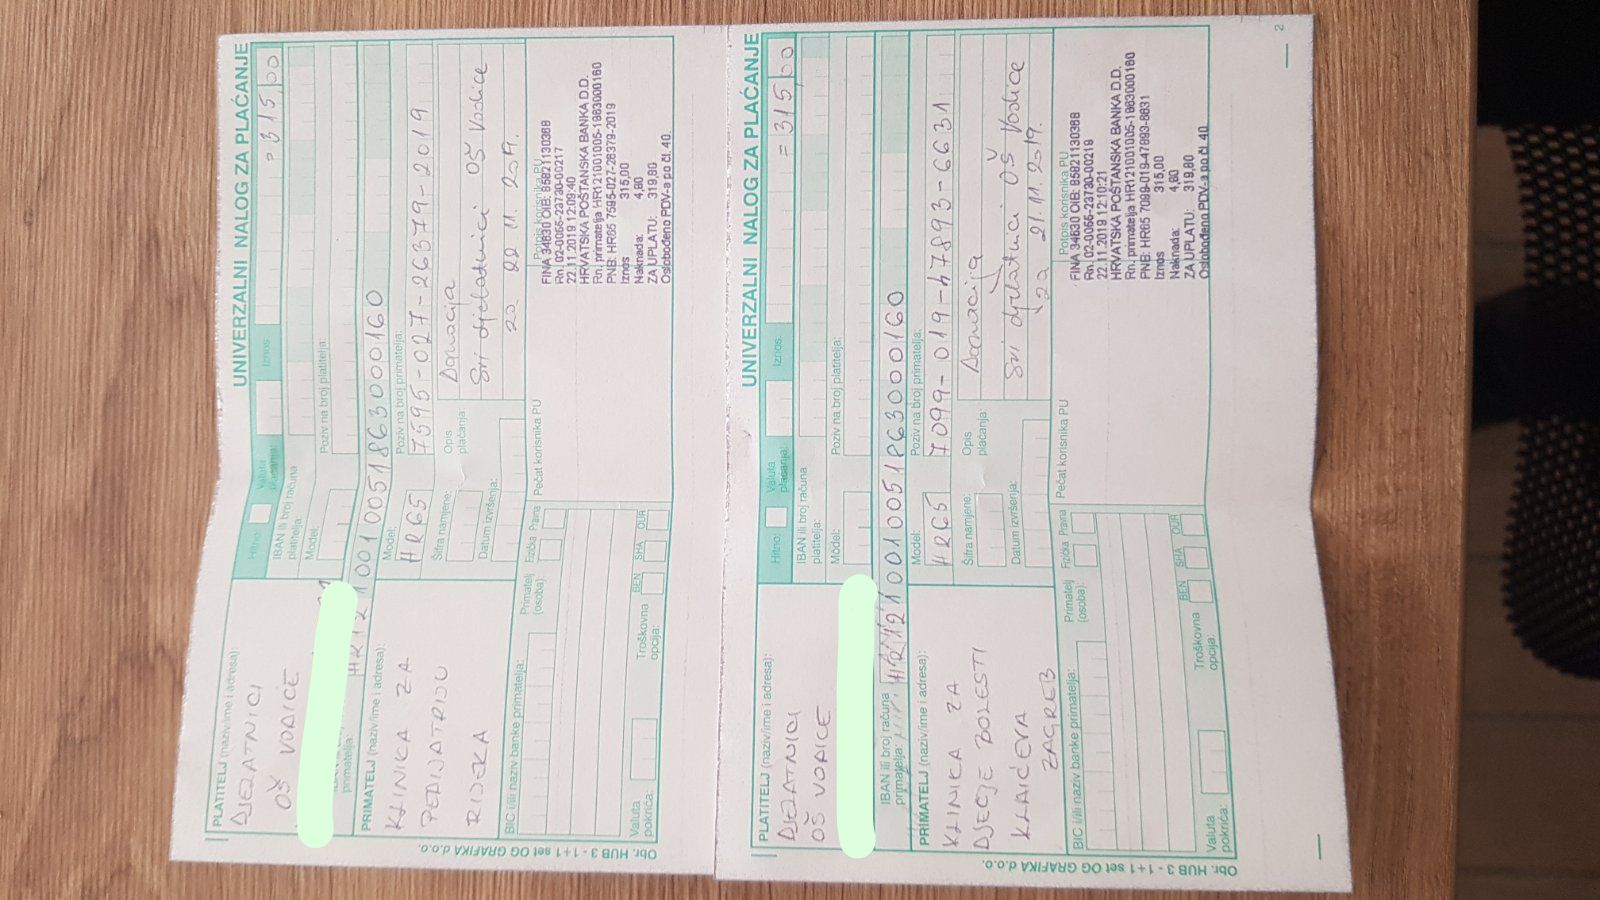 UNIVERZALNI NALOG ZA PLAĆANJE
PLATITELJ (naziv/ime i adresa):
DJELATNICI
OŠ VODICE
Hitno:
Valuta plaćanja:
Iznos:
=315,00
IBAN ili broj računa
platitelja:
Model:
Poziv na broj platitelja:
primatelja:
HR1210010051863000160
PRIMATELJ (naziv/ime i adresa):
KLINIKA ZA
PEDIJATRIJU
RIJEKA
Model:
HR65
Poziv na broj primatelja:
7595-027-26379-2019
Šifra namjene:
Opis
plaćanja:
Donacija
Svi djelatnici OŠ Vodice
22. 11. 2019.
Datum izvršenja:
BIC i/ili naziv banke primatelja:
Primatelj
(osoba):
Fizička Pravna
Pečat korisnika PU
Potpis korisnika PU
FINA 34630 OIB: 85821130368
Rn. 02-0056-23730-00217
22.11.2019 12:09:40
HRVATSKA POŠTANSKA BANKA D.D.
Rn. primatelja HR121001005-1863000160
PNB: HR65 7595-027-26379-2019
Iznos 315,00
Naknada: 4,80
ZA UPLATU: 319,80
Oslobođeno PDV-a po čl. 40.
Valuta
pokrića:
Troškovna
opcija:
BEN SHA OUR
Obr. HUB 3 - 1+1 set OG GRAFIKA d.o.o.
UNIVERZALNI NALOG ZA PLAĆANJE
PLATITELJ (naziv/ime i adresa):
DJELATNICI
OŠ VODICE
Hitno:
Valuta
plaćanja:
Iznos:
=315,00
IBAN ili broj računa
platitelja:
Model:
Poziv na broj platitelja:
IBAN ili broj računa
primatelja:
HR1210010051863000160
PRIMATELJ (naziv/ime i adresa):
KLINIKA ZA
DJEČJE BOLESTI
KLAIĆEVA
ZAGREB
Model:
HR65
Poziv na broj primatelja:
7099-019-47893-6631
Šifra namjene:
Opis
plaćanja:
Donacija
Svi djelatnici OŠ Vodice
za 21. 11. 2019.
Datum izvršenja:
BIC i/ili naziv banke primatelja:
Primatelj
(osoba):
Fizička Pravna
Pečat korisnika PU
Potpis korisnika PU
FINA 34630 OIB: 85821130368
Rn. 02-0056-23730-00219
22.11.2019 12:10:21
HRVATSKA POŠTANSKA BANKA D.D.
Rn. primatelja HR121001005-1863000160
PNB: HR65 7099-019-47893-6631
Iznos 315,00
Naknada: 4,80
ZA UPLATU: 319,80
Oslobođeno PDV-a po čl. 40.
Valuta
pokrića:
Troškovna
opcija:
BEN SHA OUR
Obr. HUB 3 - 1+1 set OG GRAFIKA d.o.o.
2